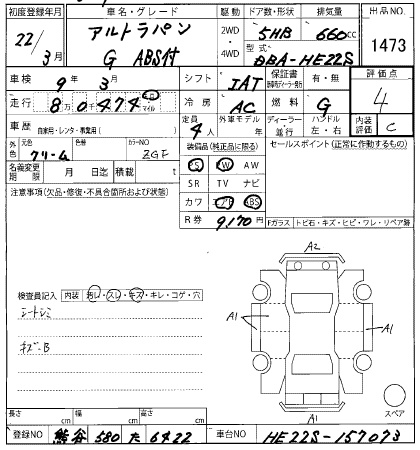 初度登録年月 車名・グレード 駆動 ドア数・形状 排気量 出品NO.
22/3月 アルトラパン G ABS付 2WD・4WD 5HB 660cc 1473
型式 DBA-HE22S
車検 9年3月 シフト IAT 保証書 有・無 評価点 4
走行 8万0474 km マイル 冷房 AC 燃料 G
車歴 自家用・レンタ・事業用( ) 定員 4人 外車モデル年 年 ディーラー・並行 ハンドル 左・右 内装評価 C
外色 元色 クリーム 色替 カラーNO ZGF 装備品(純正品に限る) セールスポイント(正常に作動するもの)
名義変更期限 月 日迄 積載 t PS PW AW
注意事項(欠品・修復・不具合箇所および状態) SR TV ナビ
カワ エアB ABS
R券 9,170円 Fガラス トビ石・キズ・ヒビ・ワレ・リペア跡
A2
検査員記入 内装 汚レ・スレ・キズ・キレ・コゲ・穴
シートシミ A1 A1
キズ-B
スペア
A1
長さ cm 幅 cm 高さ cm
登録NO 熊谷 580 た 6422 車台NO HE22S-157073